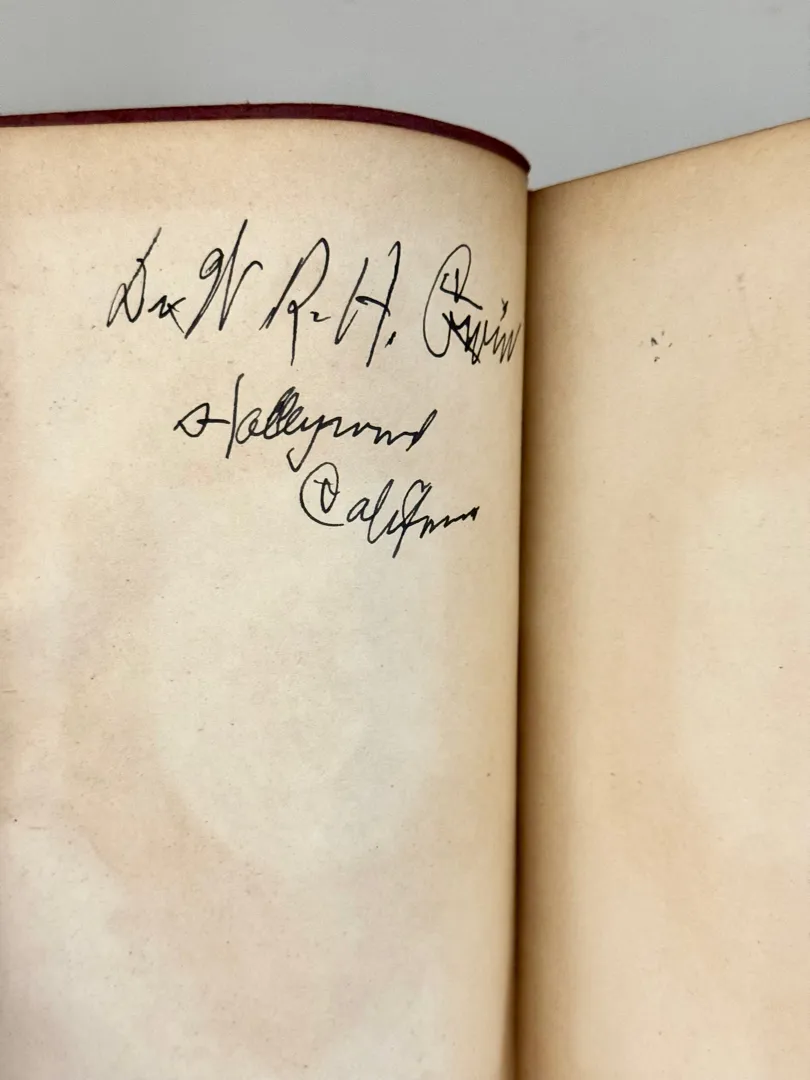 Dr W R. H.
Hollywood
California